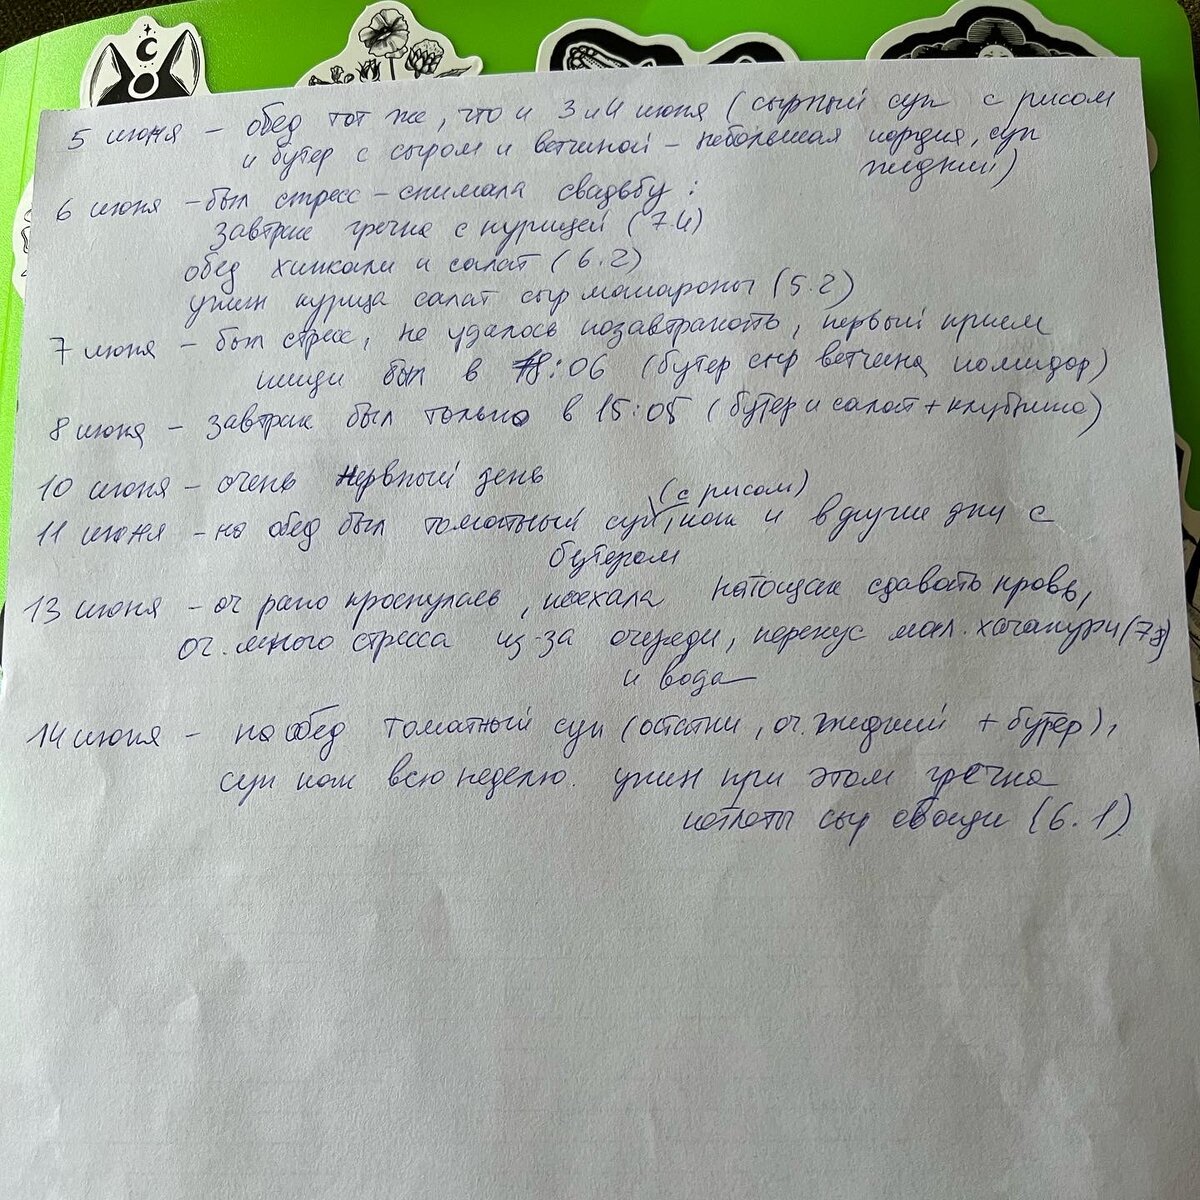 5 июня – обед тот же, что и 3 и 4 июня (сырный суп с рисом
и бутер с сыром и ветчиной – небольшая порция, суп
жидкий)
6 июня – был стресс – снимала свадьбу:
завтрак гречка с курицей (7.4)
обед хинкали и салат (6.2)
ужин курица салат сыр макароны (5.2)
7 июня – был стресс, не удалось позавтракать, первый прием
пищи был в 18:06 (бутер сыр ветчина помидор)
8 июня – завтрак был только в 15:05 (бутер и салат + клубника)
10 июня – очень нервный день
(с рисом)
11 июня – на обед был томатный суп, как и в другие дни с
бутером
13 июня – оч рано проснулась, поехала натощак сдавать кровь,
оч. много стресса из-за очереди, перекус мал. хачапури (7.8)
и вода
14 июня – на обед томатный суп (остатки, оч. жидкий + бутер),
суп как всю неделю. ужин при этом гречка
котлеты сыр овощи (6.1)